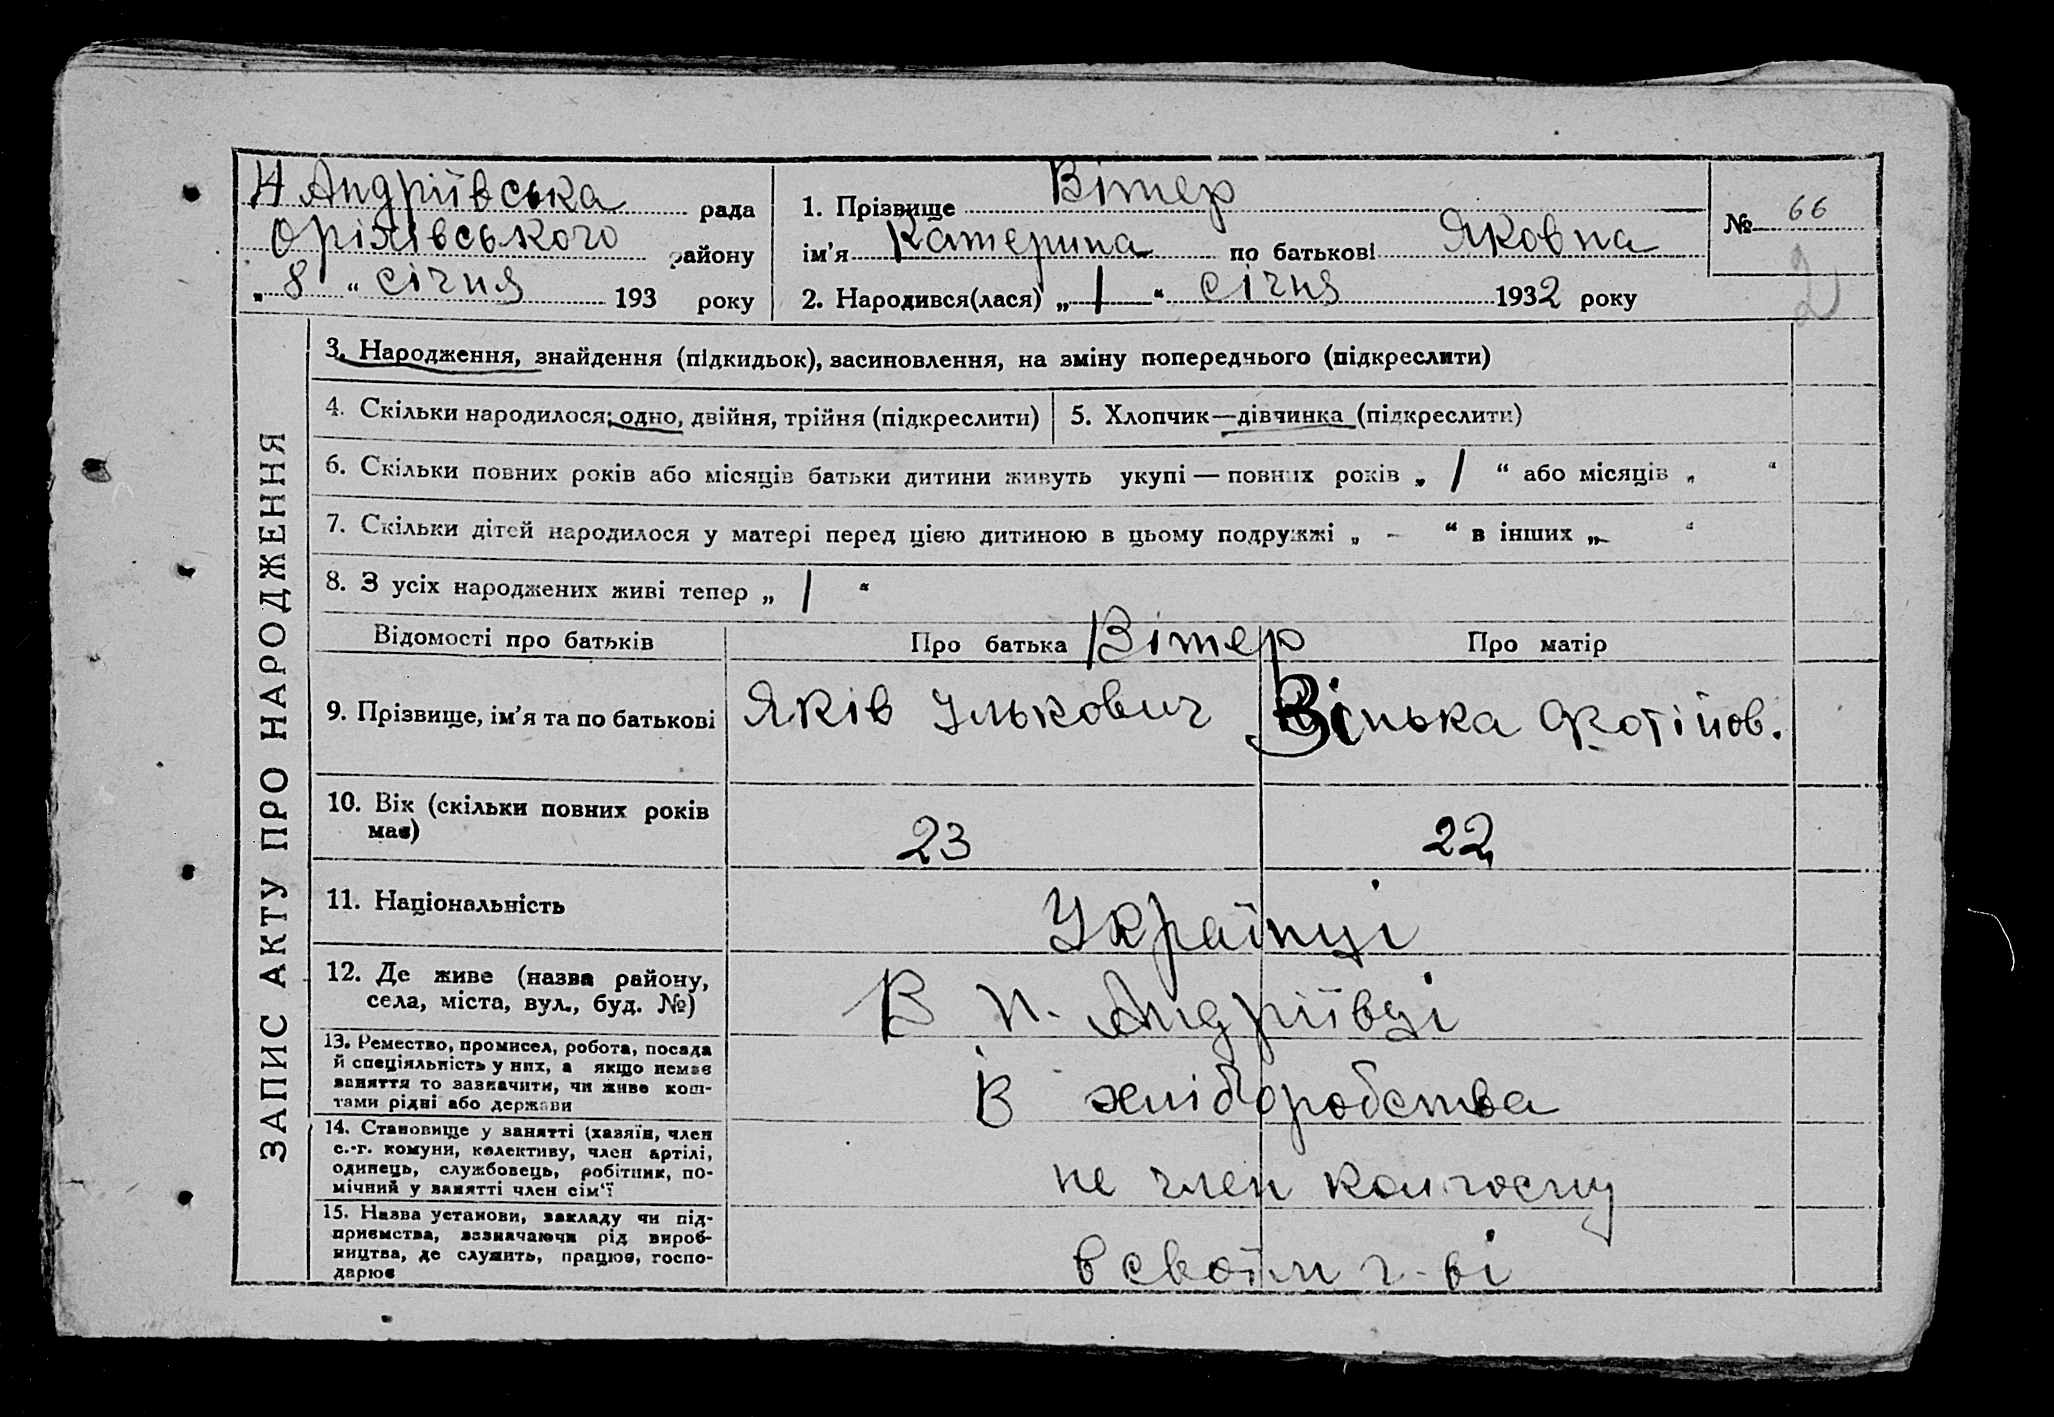 Н Андріївська рада
Орілівського району
„ 8 “ січня 193 року
1. Прізвище Вітер
ім’я Катерина по батькові Яковна
2. Народився(лася) „ 1 “ січня 1932 року
№ 66
2
ЗАПИС АКТУ ПРО НАРОДЖЕННЯ
3. Народження, знайдення (підкидьок), засиновлення, на зміну попереднього (підкреслити)
4. Скільки народилося: одно, двійня, трійня (підкреслити)
5. Хлопчик—дівчинка (підкреслити)
6. Скільки повних років або місяців батьки дитини живуть укупі — повних років „ 1 “ або місяців „ “
7. Скільки дітей народилося у матері перед цією дитиною в цьому подружжі „ - “ в інших „ - “
8. З усіх народжених живі тепер „ 1 “
Відомості про батьків
Про батька Вітер Про матір
9. Прізвище, ім’я та по батькові
Яків Улькович Зінька Фотійов.
10. Вік (скільки повних років
має)
23 22
11. Національність
Українці
12. Де живе (назва району,
села, міста, вул., буд. №)
В Н. Андріївці
13. Ремество, промисел, робота, посада
й спеціяльність у них, а якщо немає
заняття то зазначити, чи живе кош-
тами рідні або держави
В хліборобства
14. Становище у занятті (хазяїн, член
с.-г. комуни, колективу, член артілі,
одинець, службовець, робітник, по-
мічний у занятті член сім’ї
не член колгоспу
15. Назва установи, закладу чи під-
приємства, зазначаючи рід вироб-
ництва, де служить, працює, госпо-
дарює
в своїм г-ві